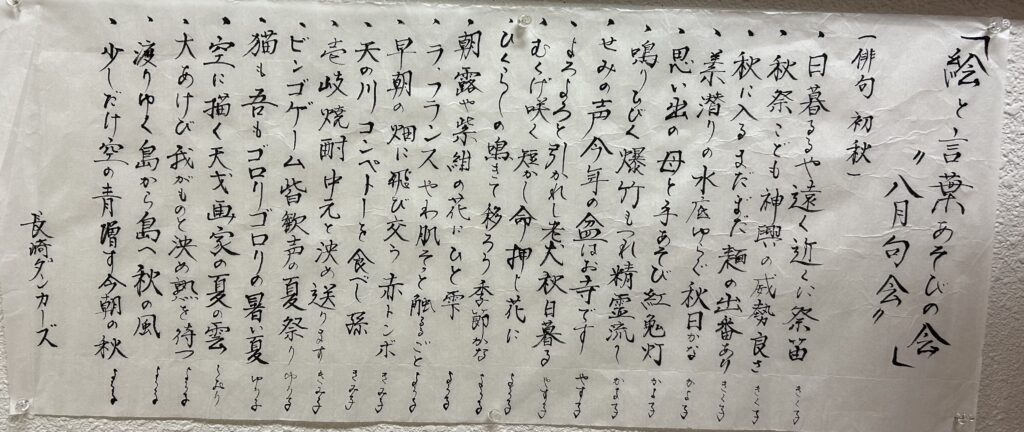 「絵と言葉あそびの会
〃八月句会〃」
(俳句 初秋)
、日暮るるや遠く近くに祭笛 きくる
、秋祭こども神輿の威勢良さ きくる
、秋に入るまだまだ麺の出番あり きくる
、素潜りの水底ゆらぐ秋日かな かよる
、思い出の母と手あそび紅兎灯 かよる
、鳴りひびく爆竹もつれ精霊流し かよる
、せみの声今年の盆はお寺です やする
、よろよろと引かれし老犬秋日暮る やする
、むくげ咲く短かし命押し花に
、ひぐらしの鳴きて移ろう季節かな
、朝露や紫紺の花にひと雫
、ラ・フランスやわ肌そっと触るごと
、早朝の畑に飛び交う赤トンボ きみる
、天の川コンペートーを食べし孫 きみる
、壱岐焼酎中元と決め送ります きみる
、ビンゴゲーム皆歓声の夏祭り ゆりる
、猫も吾もゴロリゴロリの暑い夏 ゆりる
、空に描く天才画家の夏の雲
、大あけび我がものと決め熟を待つ
、渡りゆく島から島へ秋の風
、少しだけ空の青増す今朝の秋
長崎ダンカーズ